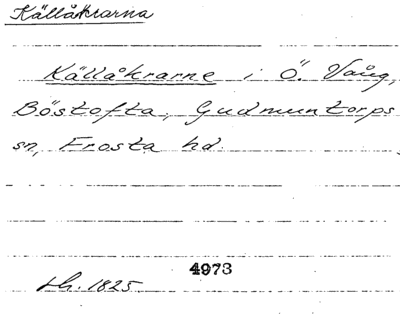 Källåkrarna
Källåkrarne i Ö. Vång,
Böstofta, Gudmuntorps
sn, Frosta hd
4973
Lh. 1825